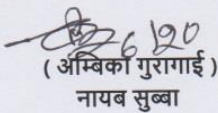 6/20
( अम्बिका गुरागाई )
नायब सुब्बा